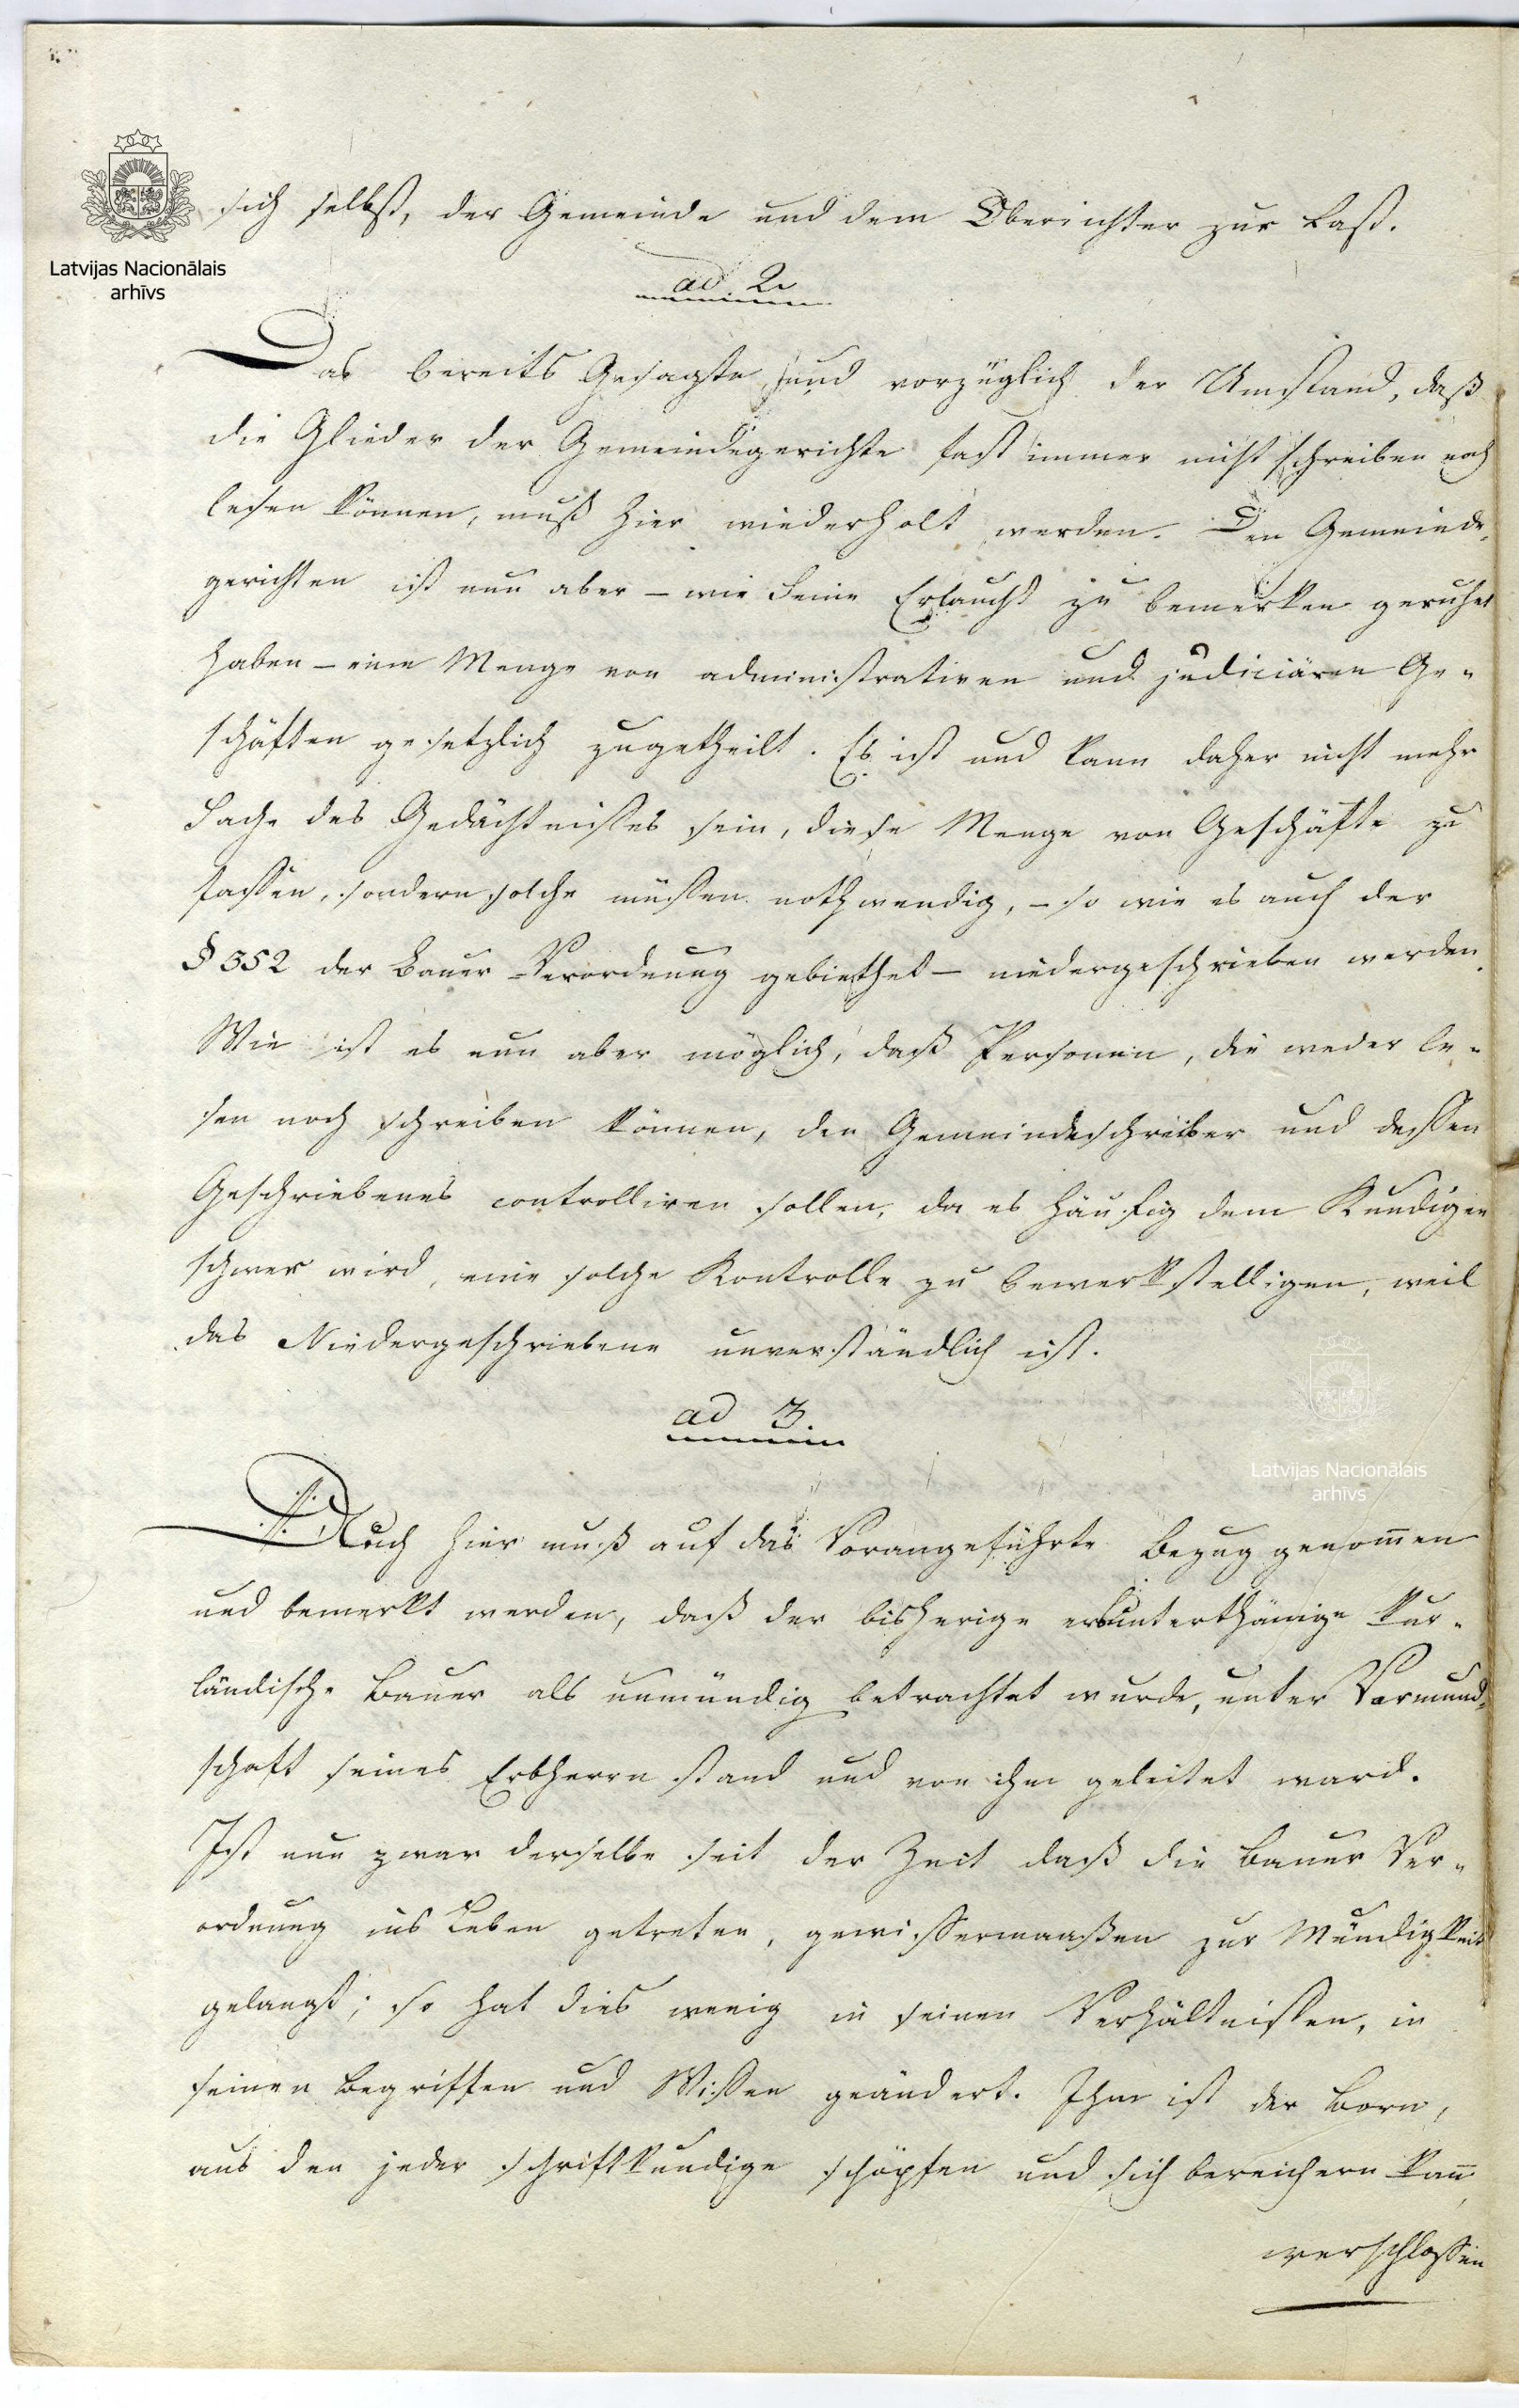 sich selbst, der Gemeinde und dem Oberrichter zur Last.
Latvijas Nacionālais
arhīvs
ad 2.
Das bereits Gesagte, und vorzüglich der Umstand, daß
die Glieder der Gemeindegerichte fast immer nicht schreiben noch
lesen können, muß hier wiederholt werden. Den Gemeinde-
gerichten ist nun aber – wie Seine Erlaucht zu bemerken geruhet
haben – eine Menge von administrativen und judiciären Ge-
schäften gesetzlich zugetheilt. Es ist und kann daher nicht mehr
Sache des Gedächtnißes sein, diese Menge von Geschäfte zu
faßen, sondern solche müßen nothwendig, – so wie es auch der
§ 352 der Bauer-Verordnung gebiethet – niedergeschrieben werden.
Wie ist es nun aber möglich, daß Personen, die weder le-
sen noch schreiben können, den Gemeindeschreiber und deßen
Geschriebenes controlliren sollen, da es häufig dem Kundigen
schwer wird, eine solche Kontrolle zu bewerkstelligen, weil
das Niedergeschriebene unverständlich ist.
ad 3.
Latvijas Nacionālais
arhīvs
Auch hier muß auf das Vorangeführte Bezug genom̄en
und bemerkt werden, daß der bisherige erbunterthänige kur-
ländische Bauer als unmündig betrachtet wurde, unter Vormund-
schaft seines Erbherrn stand und von ihm geleitet ward.
Ist nun zwar derselbe seit der Zeit daß die Bauer Ver-
ordnung ins Leben getreten, gewißermaaßen zur Mündigkeit
gelangt; so hat dies wenig in seinen Verhältnißen, in
seinen Begriffen und Wißen geändert. Ihm ist der Born,
aus den jeder schriftkundige schöpfen und sich bereichern kan̄,
verschloßen